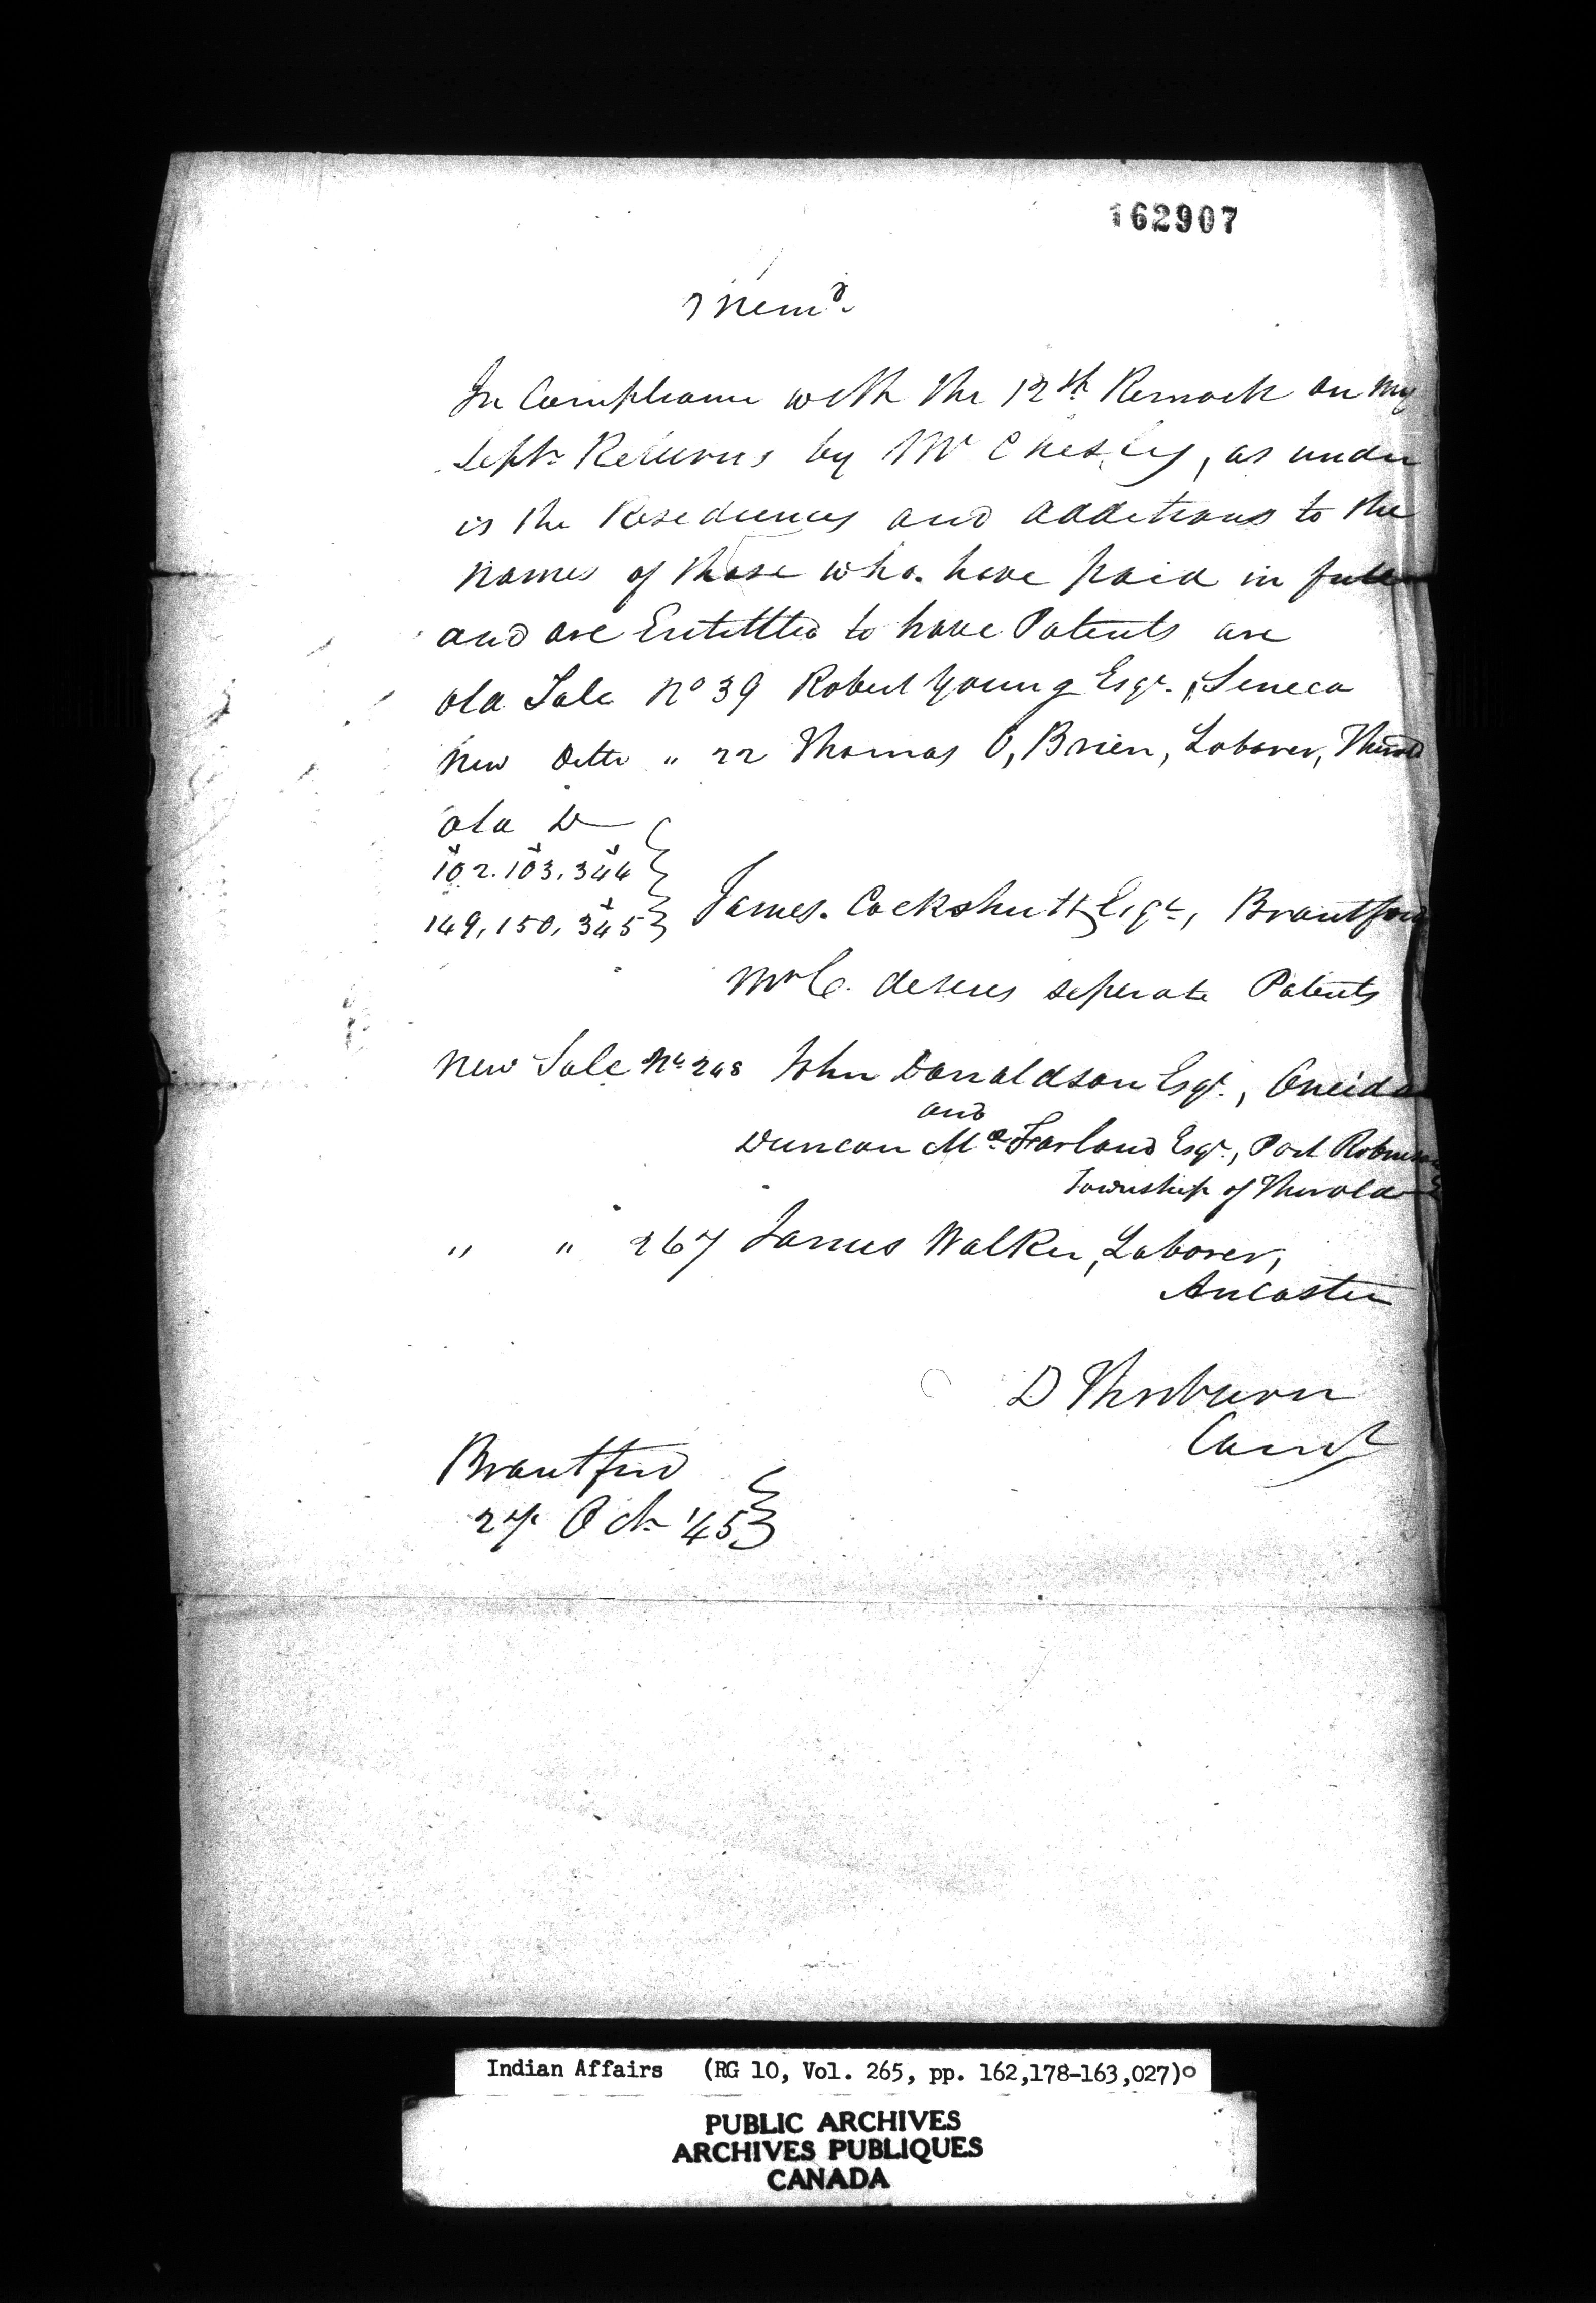 162907
Memo.
In Compliance with the 12th Remark on my
Septr. Returns by Mr Chesley, as under
is the Residences and additions to the
names of those who have paid in full
and are Entittled to have Patents are
old Sale No 39 Robert Young Esqr., Seneca
New Ditto " 22 Thomas O,Brien, Laborer, Thorold
old Do
102. 103. 344
149, 150, 345 } James. Cockshutt Esqr, Brantford
Mr C. desires seperate Patents
New Sale No 248 John Donaldson Esqr., Oneida
and
Duncan McFarland Esqr., Port Robinson
Township of Thorold
" " 267 James Walker, Laborer,
Ancaster
D Thorburn
Comr
Brantford
27 Octr '45 }
Indian Affairs (RG 10, Vol. 265, pp. 162,178-163,027)
PUBLIC ARCHIVES
ARCHIVES PUBLIQUES
CANADA